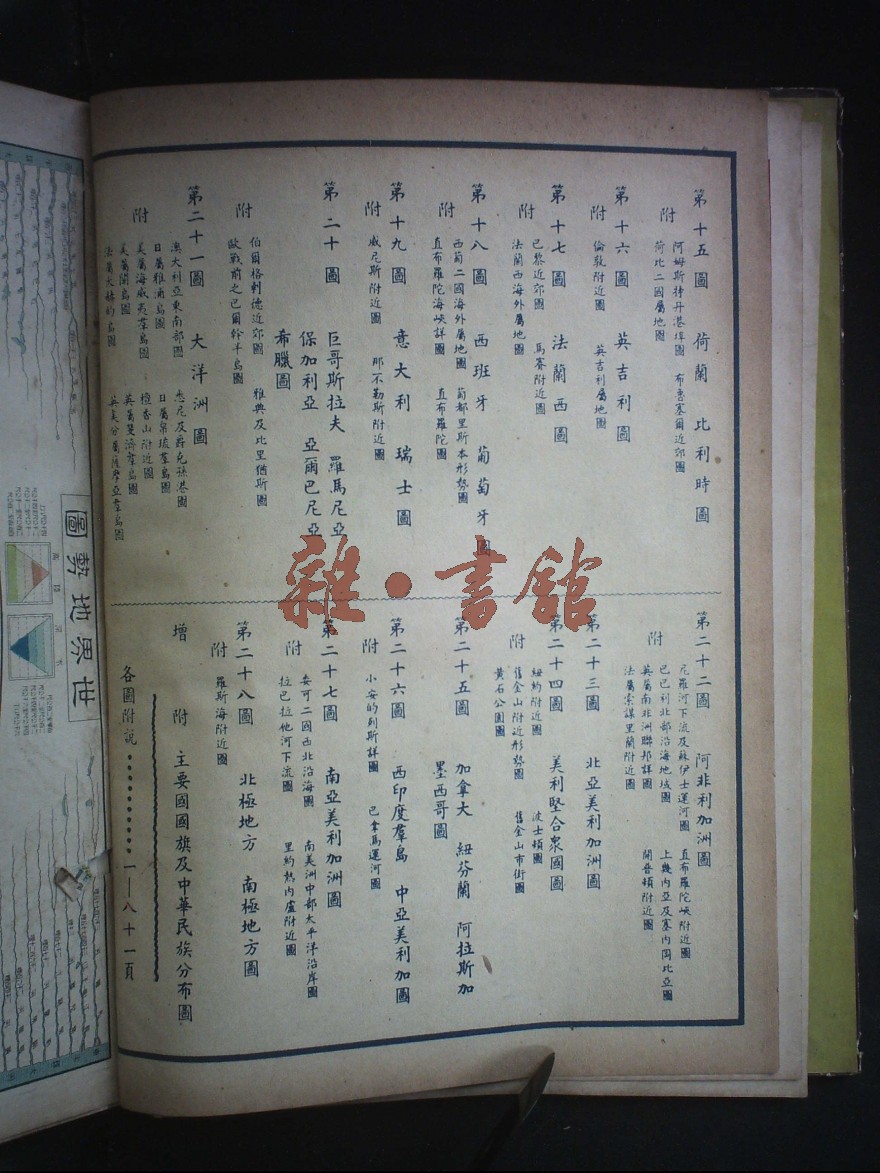 第十五圖 荷蘭 比利時圖
附
阿姆斯特丹港埠圖 布魯塞爾近郊圖
荷比二國屬地圖
第十六圖 英吉利圖
附
倫敦附近圖 英吉利屬地圖
第十七圖 法蘭西圖
附
巴黎近郊圖 馬賽附近圖
法蘭西海外屬地圖
第十八圖 西班牙 葡萄牙圖
附
西葡二國海外屬地圖 葡都里斯本形勢圖
直布羅陀海峽詳圖 直布羅陀圖
第十九圖 意大利 瑞士圖
附
威尼斯附近圖 那不勒斯附近圖
第二十圖 巨哥斯拉夫 羅馬尼亞
保加利亞 亞爾巴尼亞
希臘圖
附
伯爾格剌德近郊圖 雅典及比里猶斯圖
歐戰前之巴爾幹半島圖
第二十一圖 大洋洲圖
附
澳大利亞東南部圖 悉尼及爵克孫港圖
日屬雅浦島圖 日屬帛琉羣島圖
美屬海威夷羣島圖 檀香山附近圖
美屬關島圖 英屬斐濟羣島圖
法屬大赫的島圖 英美分屬薩摩亞羣島圖
第二十二圖 阿非利加洲圖
附
尼羅河下流及蘇伊士運河圖 直布羅陀峽附近圖
巴巴利北部沿海地域圖 上幾內亞及塞內岡比亞圖
英屬南非洲聯邦詳圖 開普頓附近圖
法屬索謀里蘭附近圖
第二十三圖 北亞美利加洲圖
第二十四圖 美利堅合衆國圖
附
紐約附近圖 波士頓圖
舊金山附近形勢圖 舊金山市街圖
黃石公園圖
第二十五圖 加拿大 紐芬蘭 阿拉斯加
墨西哥圖
第二十六圖 西印度羣島 中亞美利加圖
附
小安的列斯詳圖 巴拿馬運河圖
第二十七圖 南亞美利加洲圖
附
委可二國西北沿海圖 南美洲中部太平洋沿岸圖
拉巴拉他河下流圖 里約熱內盧附近圖
第二十八圖 北極地方 南極地方圖
附
羅斯海附近圖
增附 主要國國旗及中華民族分布圖
各圖附說…………一—八十一頁
世界地勢圖
雜·書館